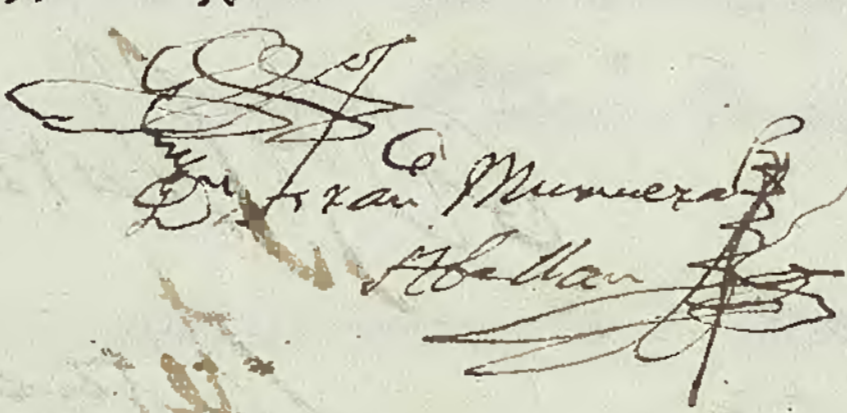 Dn Fran Munuera
Abellan